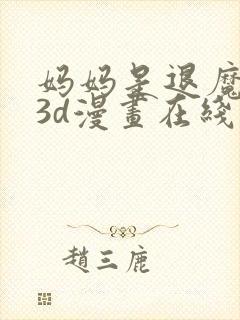 妈妈是退魔
3d漫畫在綫
趙三鹿